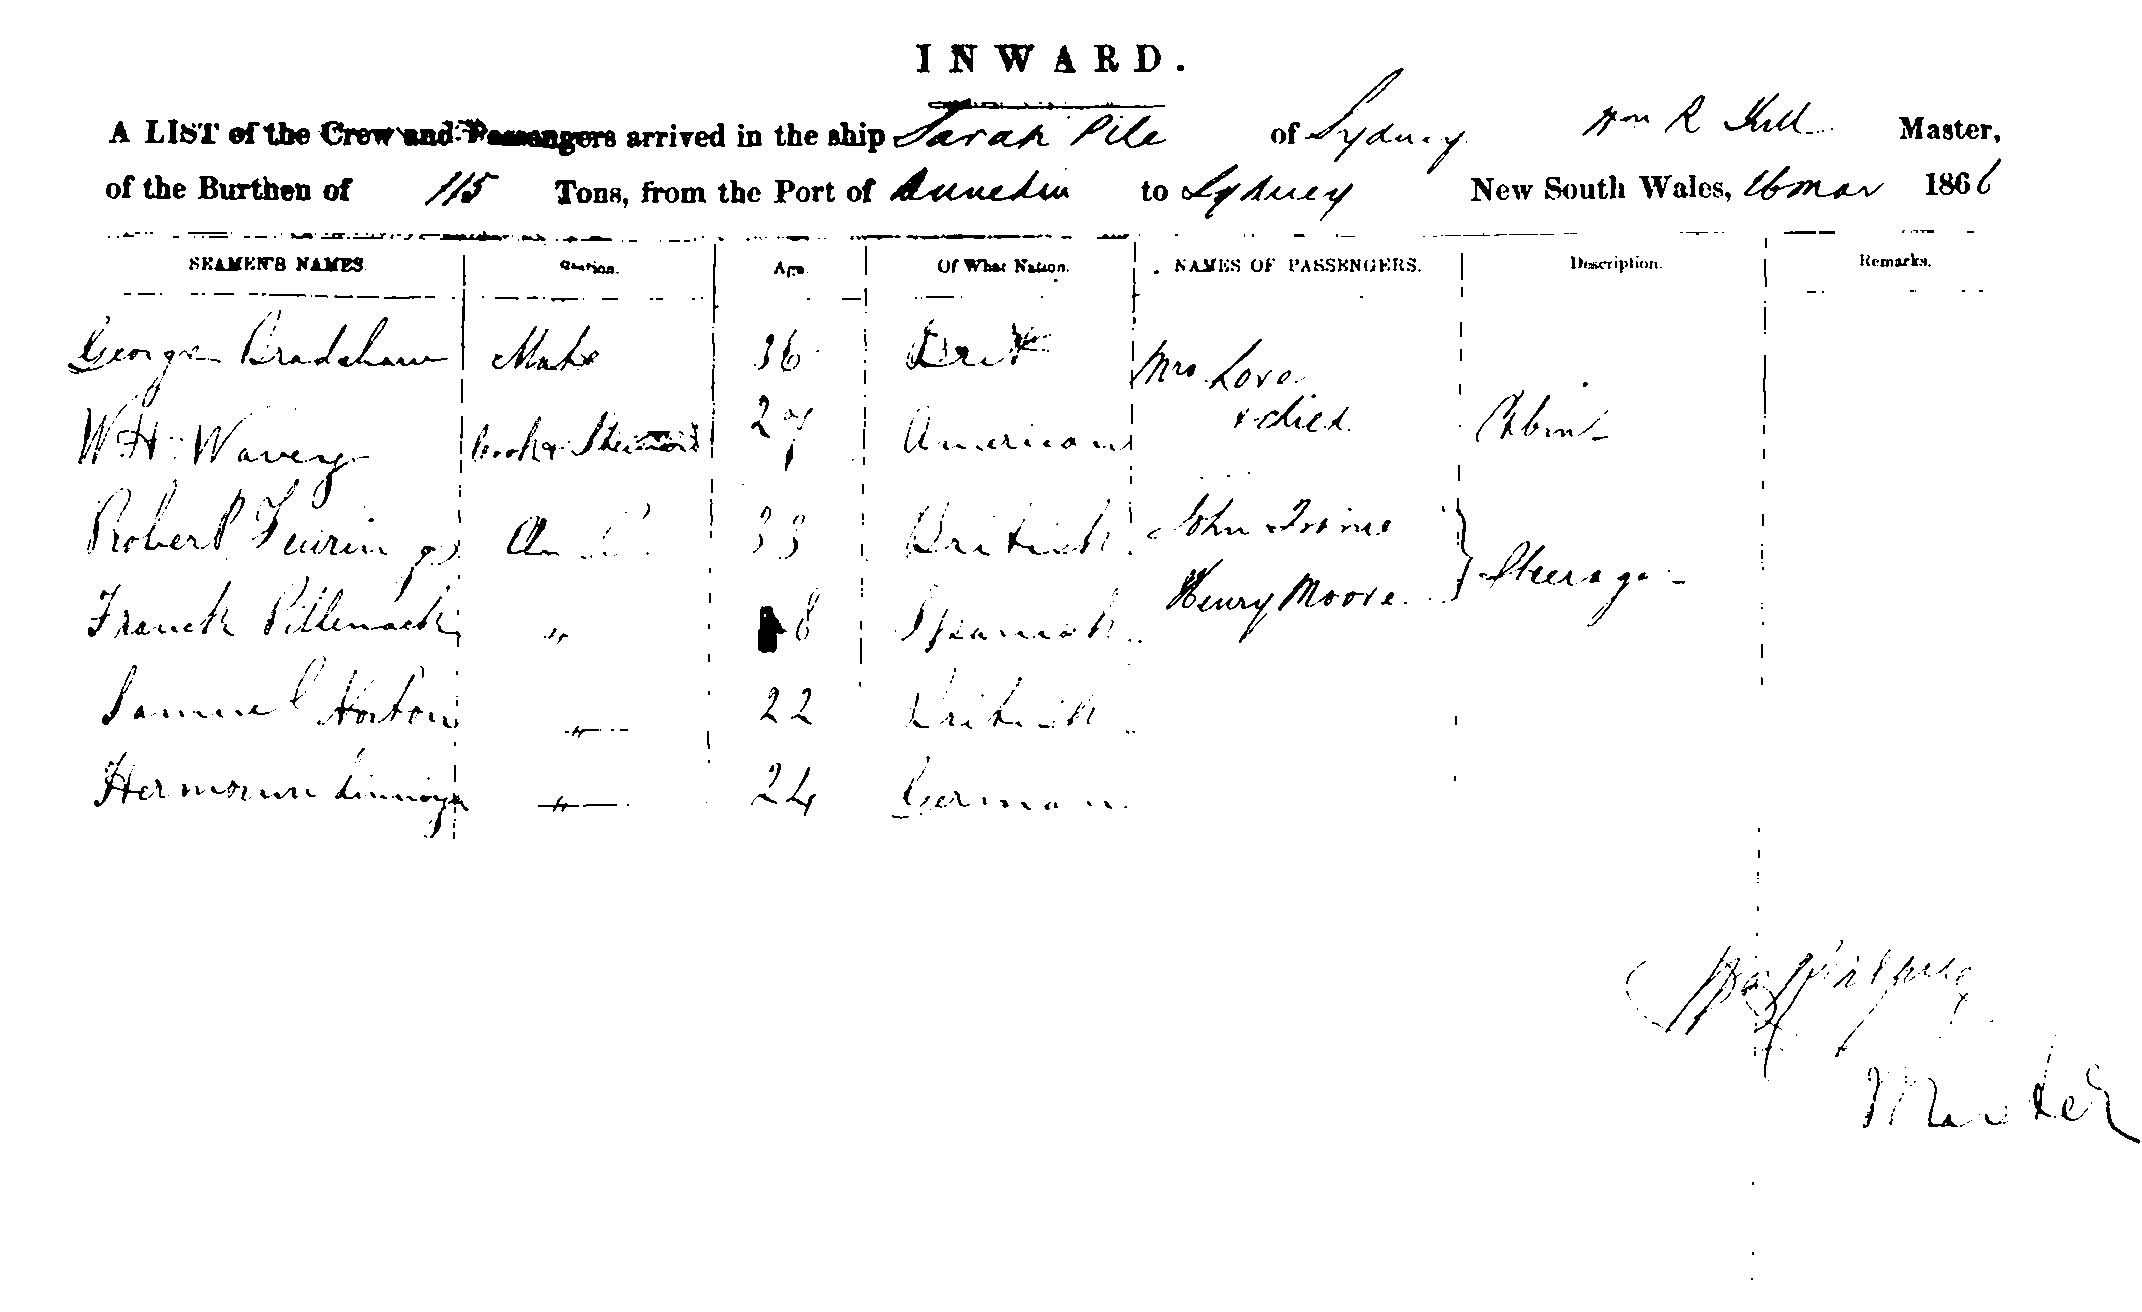 INWARD.
A LIST of the Crew and Passengers arrived in the ship Sarah Pile of Sydney Wm R Hill Master,
of the Burthen of 115 Tons, from the Port of Dunedin to Sydney New South Wales, 16 Mar 1866
SEAMEN'S NAMES. Station. Age. Of What Nation. NAMES OF PASSENGERS. Description. Remarks.
George Bradshaw Mate 36 Brit Mrs Love
W H Wavery Cook & Steward 27 American & child Cabin
Robert 33 British John Irvine
Franck 8 Spanish Henry Moore Steerage
Samuel Horton " 22 British
Hermann " 24 German
Master